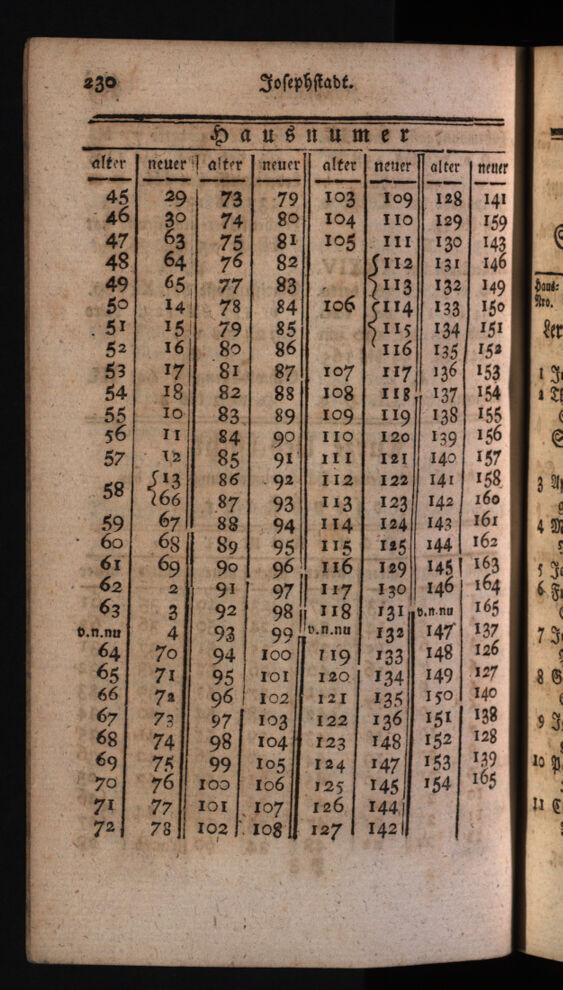 230 Josephstadt.
Hausnumer
alter neuer alter neuer alter neuer alter neuer
45 29 73 79 103 109 128 141
46 30 74 80 104 110 129 159
47 63 75 81 105 111 130 143
48 64 76 82 {112 131 146
49 65 77 83 {113 132 149
50 14 78 84 106 {114 133 150
51 15 79 85 {115 134 151
52 16 80 86 116 135 152
53 17 81 87 107 117 136 153
54 18 82 88 108 118 137 154
55 10 83 89 109 119 138 155
56 11 84 90 110 120 139 156
57 12 85 91 111 121 140 157
58 {13 86 92 112 122 141 158
{66 87 93 113 123 142 160
59 67 88 94 114 124 143 161
60 68 89 95 115 125 144 162
61 69 90 96 116 129 145 163
62 2 91 97 117 130 146 164
63 3 92 98 118 131 v.n.nu 165
v.n.nu 4 93 99 v.n.nu 132 147 137
64 70 94 100 119 133 148 126
65 71 95 101 120 134 149 127
66 72 96 102 121 135 150 140
67 73 97 103 122 136 151 138
68 74 98 104 123 148 152 128
69 75 99 105 124 147 153 139
70 76 100 106 125 145 154 165
71 77 101 107 126 144
72 78 102 108 127 142
Haus=
Nro.
1
2
3
4
5
6
7
8
9
10
11